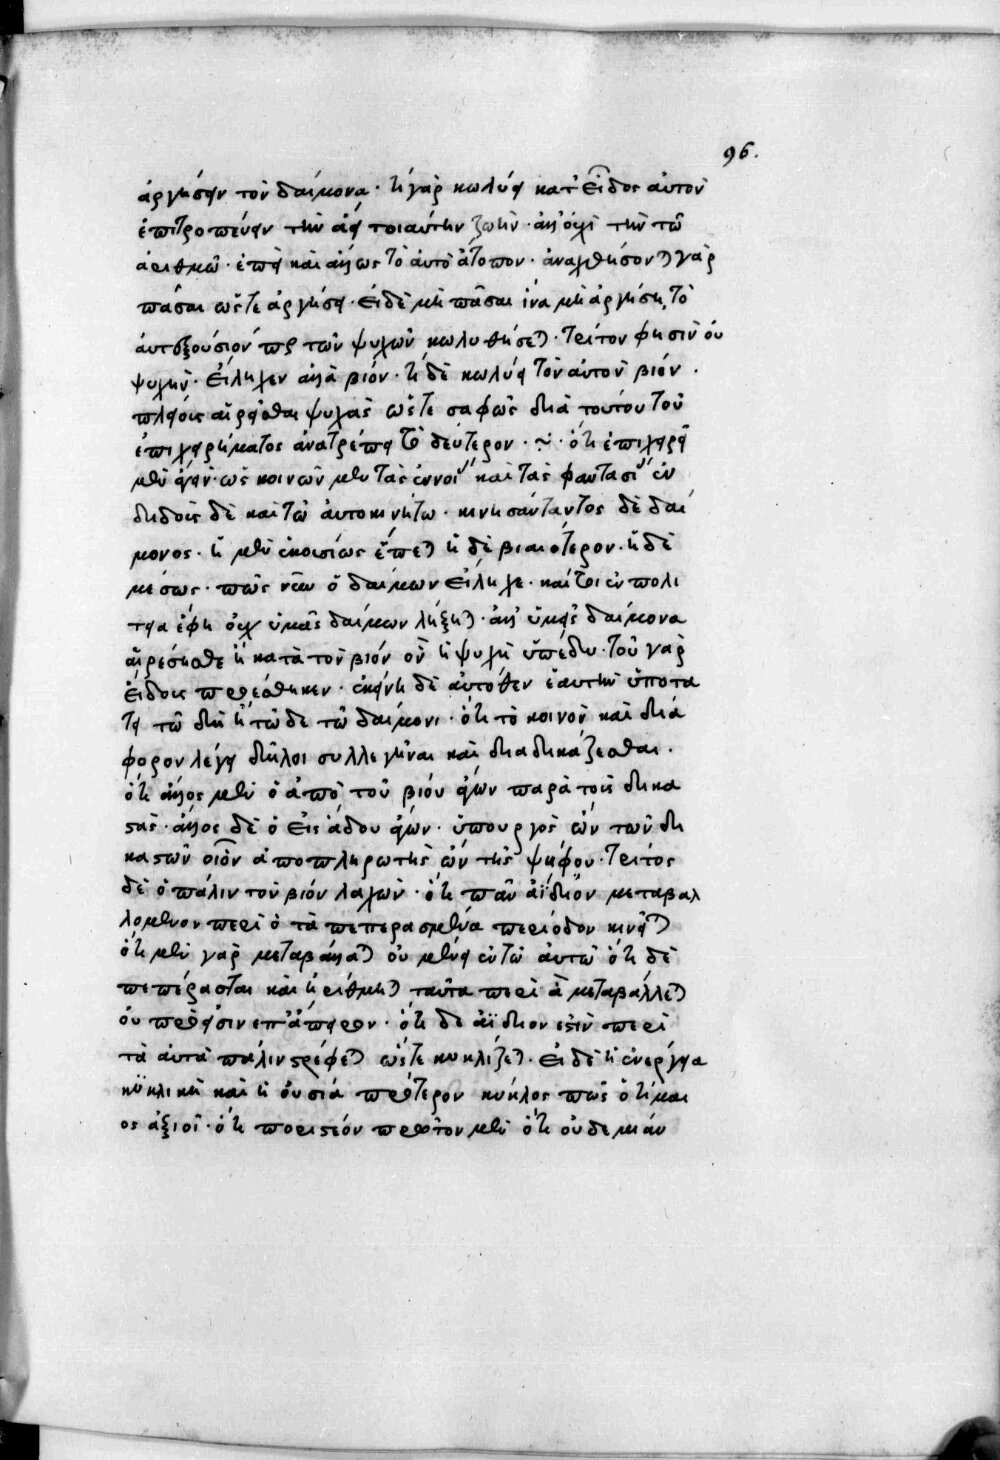 96.
ἀργήσειν τὸν δαίμονα · τί γὰρ κωλύει κατ' εἶδος αὐτὸν
ἐπιτροπεύειν τὴν ἀεὶ τοιαύτην ζωὴν · ἀλλ' οὐχὶ τὴν τῶ
ἀριθμῶ · ἐπεὶ καὶ ἄλλως τὸ αὐτὸ ἄτοπον · ἀναχθήσονται γὰρ
πᾶσαι ὥστε ἀργήσει · εἰ δὲ μὴ πᾶσαι ἵνα μὴ ἀργήσῃ, τὸ
αὐτεξούσιόν πως τῶν ψυχῶν κωλυθήσεται · τρίτον φησὶν οὐ
ψυχὴν · εἴληχεν ἀλλὰ βίον · τί δὲ κωλύει τὸν αὐτὸν βίον ·
πλείοις αἱρεῖσθαι ψυχὰς ὥστε σαφῶς διὰ τούτου τοῦ
ἐπιχειρήματος ἀνατρέπει τὸ δεύτερον · ὅτι ἐπιχειρεῖ
μὲν ὡς κοινῶν μὲν τὰς ἐννοί καὶ τὰς φαντασί ἐν
διδοὺς δὲ καὶ τῶ αὐτοκινήτω · κινήσαντος δὲ δαί
μονος · ἢ μὲν ἑκουσίως ἕπεται ἢ δὲ βιαιότερον · ἢ δὲ
μέσως · πῶς ὁ δαίμων εἴληχε · καίτοι ἐν πολι
τεία ἔφη οὐχ ὑμᾶς δαίμων λήξεται · ἀλλ' ὑμεῖς δαίμονα
αἱρήσεσθε ἢ κατὰ τὸν βίον ὃν ἡ ψυχὴ ὑπέδυ · τοῦ γὰρ
εἴδους προέστηκεν · ἐκείνη δὲ αὐτόθεν ἑαυτὴν ὑποτά
τει τῶ δὴ ἢ τῶδε τῶ δαίμονι · ὅτι τὸ κοινὸν καὶ διά
φορον λέγει δηλοῖ συλλεγῆναι καὶ διαδικάζεσθαι ·
ὅτι ἄλλος μὲν ὁ ἀπὸ τοῦ βίου ἄγων παρὰ τοὺς δικα
στὰς · ἄλλος δὲ ὁ εἰς ἅδου ἄγων · ὑπουργὸς ὢν τῶν δι
καστῶν οἷον ἀποπληρωτὴς ὢν τῆς ψήφου · τρίτος
δὲ ὁ πάλιν τὸν βίον λαχὼν · ὅτι πᾶν ἀΐδιον μεταβαλ
λόμενον περὶ ὁ τὰ πεπερασμένα περίοδον κινεῖται
ὅτι μὲν γὰρ μεταβάλλεται οὐ μένει ἐν τῶ αὐτῶ ὅτι δὲ
πεπέρασται καὶ ἠρίθμηται ταῦτα περὶ ἃ μεταβάλλεται
οὐ πρόεισιν ἐπ' ἄπειρον · ὅτι δὲ ἀΐδιον ἐστὶν περὶ
τὰ αὐτὰ πάλιν στρέφεται ὥστε κυκλίζεται · εἰ δὲ ἡ ἐνέργεια
κυκλικὴ καὶ ἡ οὐσία πρότερον κύκλος πῶς ὁ τίμαι
ος ἀξιοῖ · ὅτι ποριστέον πρῶτον μὲν ὅτι οὐδεμίαν